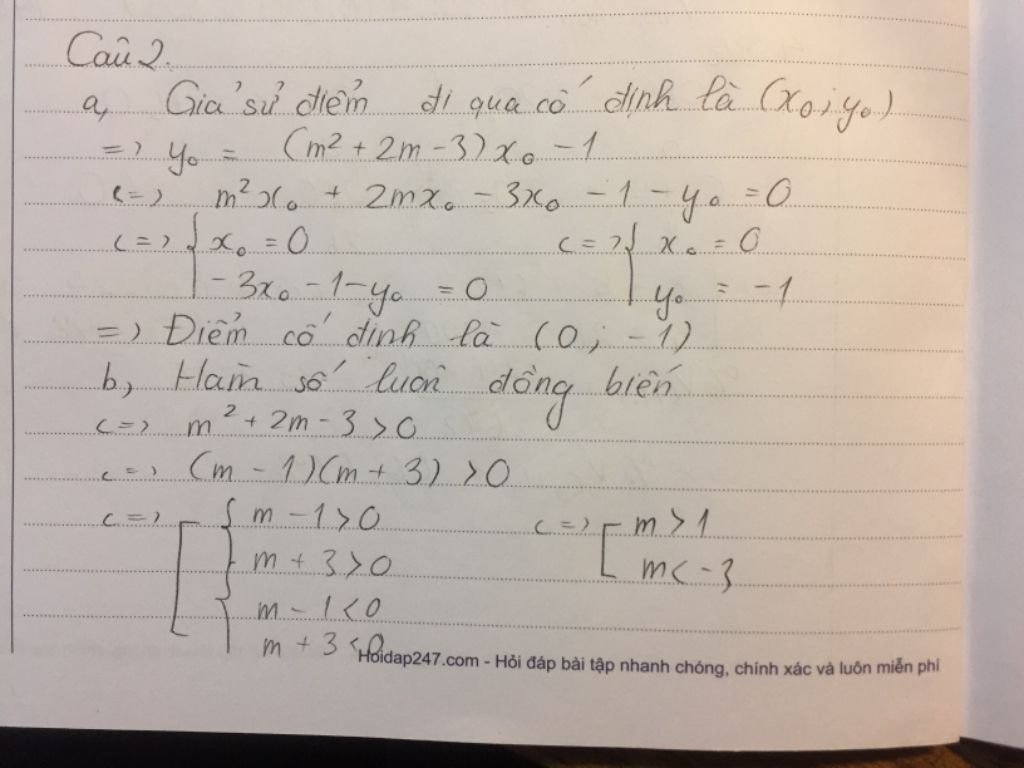 Câu 2.
a, Giả sử điểm đi qua cố định là (x₀; y₀)
=> y₀ = (m² + 2m - 3)x₀ - 1
<=> m²x₀ + 2mx₀ - 3x₀ - 1 - y₀ = 0
<=> { x₀ = 0 <=> { x₀ = 0
-3x₀ - 1 - y₀ = 0 y₀ = -1
=> Điểm cố định là (0; -1)
b, Hàm số luôn đồng biến
<=> m² + 2m - 3 > 0
<=> (m - 1)(m + 3) > 0
<=> [ { m - 1 > 0 <=> [ m > 1
m + 3 > 0 m < -3
{ m - 1 < 0
m + 3 < 0
Hoidap247.com - Hỏi đáp bài tập nhanh chóng, chính xác và luôn miễn phí